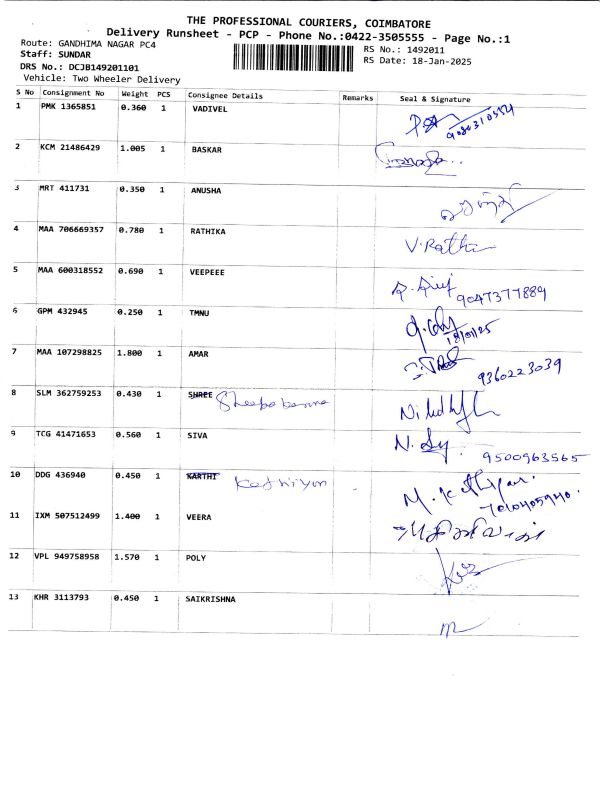 THE PROFESSIONAL COURIERS, COIMBATORE
Delivery Runsheet - PCP - Phone No.:0422-3505555 - Page No.:1
Route: GANDHIMA NAGAR PC4
Staff: SUNDAR
DRS No.: DCJB149201101
Vehicle: Two Wheeler Delivery
RS No.: 1492011
RS Date: 18-Jan-2025
S No Consignment No Weight PCS Consignee Details Remarks Seal & Signature
1 PMK 1365851 0.360 1 VADIVEL
2 KCM 21486429 1.005 1 BASKAR
3 MRT 411731 0.350 1 ANUSHA
4 MAA 706669357 0.780 1 RATHIKA V.Rathi
5 MAA 600318552 0.690 1 VEEPEEE 9047377889
6 GPM 432945 0.250 1 TMNU 18/01/25
7 MAA 107298825 1.800 1 AMAR 9360223039
8 SLM 362759253 0.430 1 SHREE
9 TCG 41471653 0.560 1 SIVA 9500963565
10 DDG 436940 0.450 1 KARTHI
11 IXM 507512499 1.400 1 VEERA
12 VPL 949758958 1.570 1 POLY
13 KHR 3113793 0.450 1 SAIKRISHNA